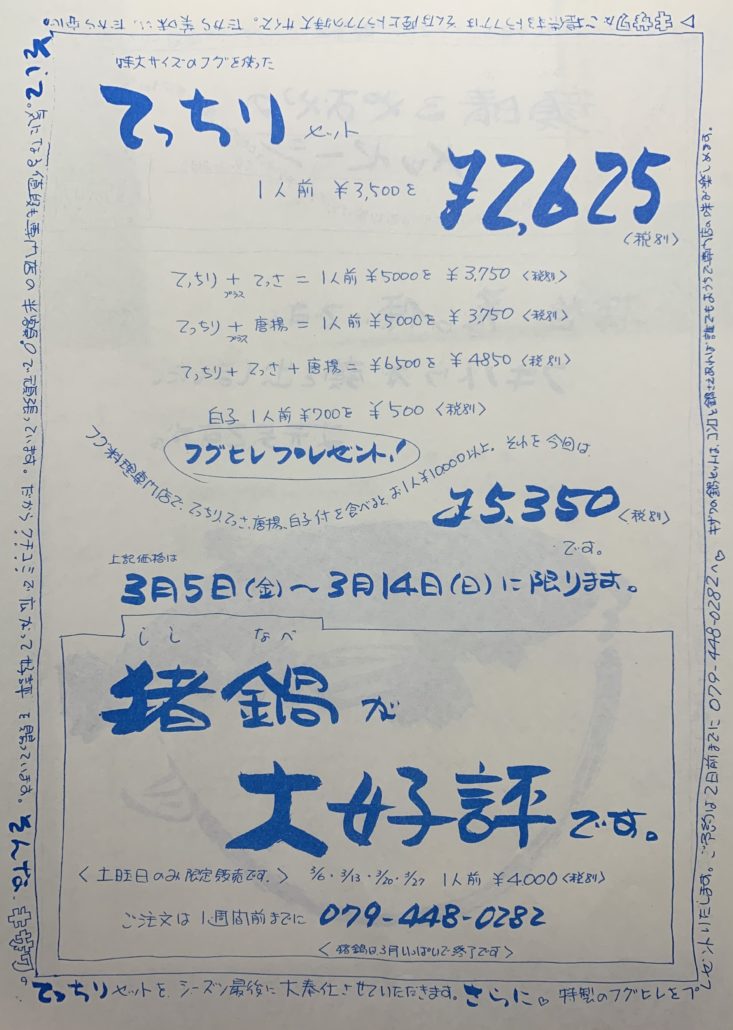 特大サイズのフグを使った
てっちりセット
1人前 ¥3,500を ¥2,625
〈税別〉
てっちり + てっさ = 1人前 ¥5000を ¥3,750 〈税別〉
プラス
てっちり + 唐揚 = 1人前 ¥5000を ¥3,750 〈税別〉
プラス
てっちり + てっさ + 唐揚 = ¥6500を ¥4850 〈税別〉
白子 1人前 ¥700を ¥500 〈税別〉
フグヒレプレゼント!
フグ料理専門店で、てっちり、てっさ、唐揚、白子付を食べると、お1人¥10000以上。それを今回は
¥5,350 〈税別〉
です。
上記価格は
3月5日(金)〜3月14日(日)に限ります。
しし なべ
猪鍋が
大好評です。
〈土曜日のみ限定販売です。〉 3/6・3/13・3/20・3/27 1人前 ¥4000〈税別〉
ご注文は1週間前までに 079-448-0282
〈猪鍋は3月いっぱいで終了です〉
てっちりセットを、シーズン最後に大奉仕させていただきます。さらに♡ 特製のフグヒレをプ
レゼントいたします。ご予約は2日前までに079-448-0282へ♡
の鍋セットは、コンロと鍋さえあれば、誰でもおうちで専門店の味が楽しめます。
そして。気になる値段も専門店の半額。で頑張っています。だからクチコミで広がって好評を賜っています。そんな、